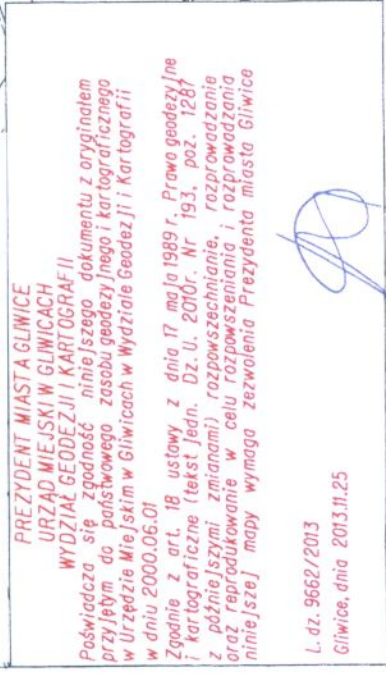 PREZYDENT MIASTA GLIWICE
URZĄD MIEJSKI W GLIWICACH
WYDZIAŁ GEODEZJI I KARTOGRAFII
Poświadcza się zgodność niniejszego dokumentu z oryginałem
przyjętym do państwowego zasobu geodezyjnego i kartograficznego
w Urzędzie Miejskim w Gliwicach w Wydziale Geodezji i Kartografii
w dniu 2000.06.01
Zgodnie z art. 18 ustawy z dnia 17 maja 1989 r. Prawo geodezyjne
i kartograficzne (tekst jedn. Dz. U. 2010r. Nr 193, poz. 1287
z późniejszymi zmianami) rozpowszechnianie, rozprowadzanie
oraz reprodukowanie w celu rozpowszeniania i rozprowadzania
niniejszej mapy wymaga zezwolenia Prezydenta miasta Gliwice
L. dz. 9662/2013
Gliwice, dnia 2013.11.25